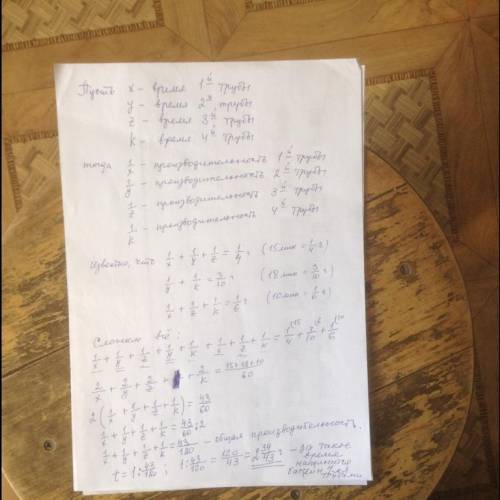 Пусть x – время 1й трубы
y – время 2й трубы
z – время 3й трубы
k – время 4й трубы
тогда 1/x – производительность 1й трубы
1/y – производительность 2й трубы
1/z – производительность 3й трубы
1/k – производительность 4й трубы
Известно, что 1/x + 1/y + 1/z = 1/4 (15 мин = 1/4 ч)
1/y + 1/k = 3/10 (18 мин = 3/10 ч)
1/x + 1/z + 1/k = 1/6 (10 мин = 1/6 ч)
Сложим всё:
1/x + 1/y + 1/z + 1/y + 1/k + 1/x + 1/z + 1/k = 1/4 + 3/10 + 1/6
2/x + 2/y + 2/z + 2/k = (15+18+10)/60
2(1/x + 1/y + 1/z + 1/k) = 43/60
1/x + 1/y + 1/z + 1/k = 43/60 : 2
1/x + 1/y + 1/z + 1/k = 43/120 – общая производительность.
t = 1 : 43/120 ; 1 : 43/120 = 120/43 = 2 34/43 ч – за такое
время
наполнится
бассейн
трубами